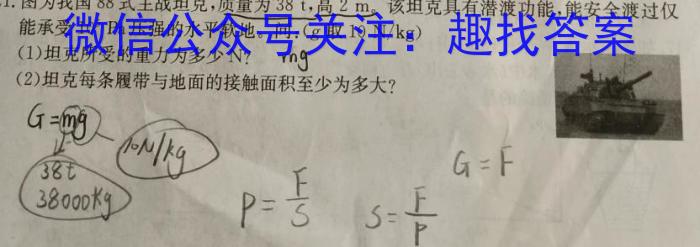 1.图为我国88式主战坦克,质量为38 t,高2 m。该坦克具有潜渡功能,能安全渡过仅
能承受 压强的水平软地 (g取10 N/kg)
微信公众号关注：趣找答案
(1)坦克所受的重力为多少N? mg
(2)坦克每条履带与地面的接触面积至少为多大?
G=mg
10N/kg
38t
38000kg
P=F/S
S=F/P
G=F